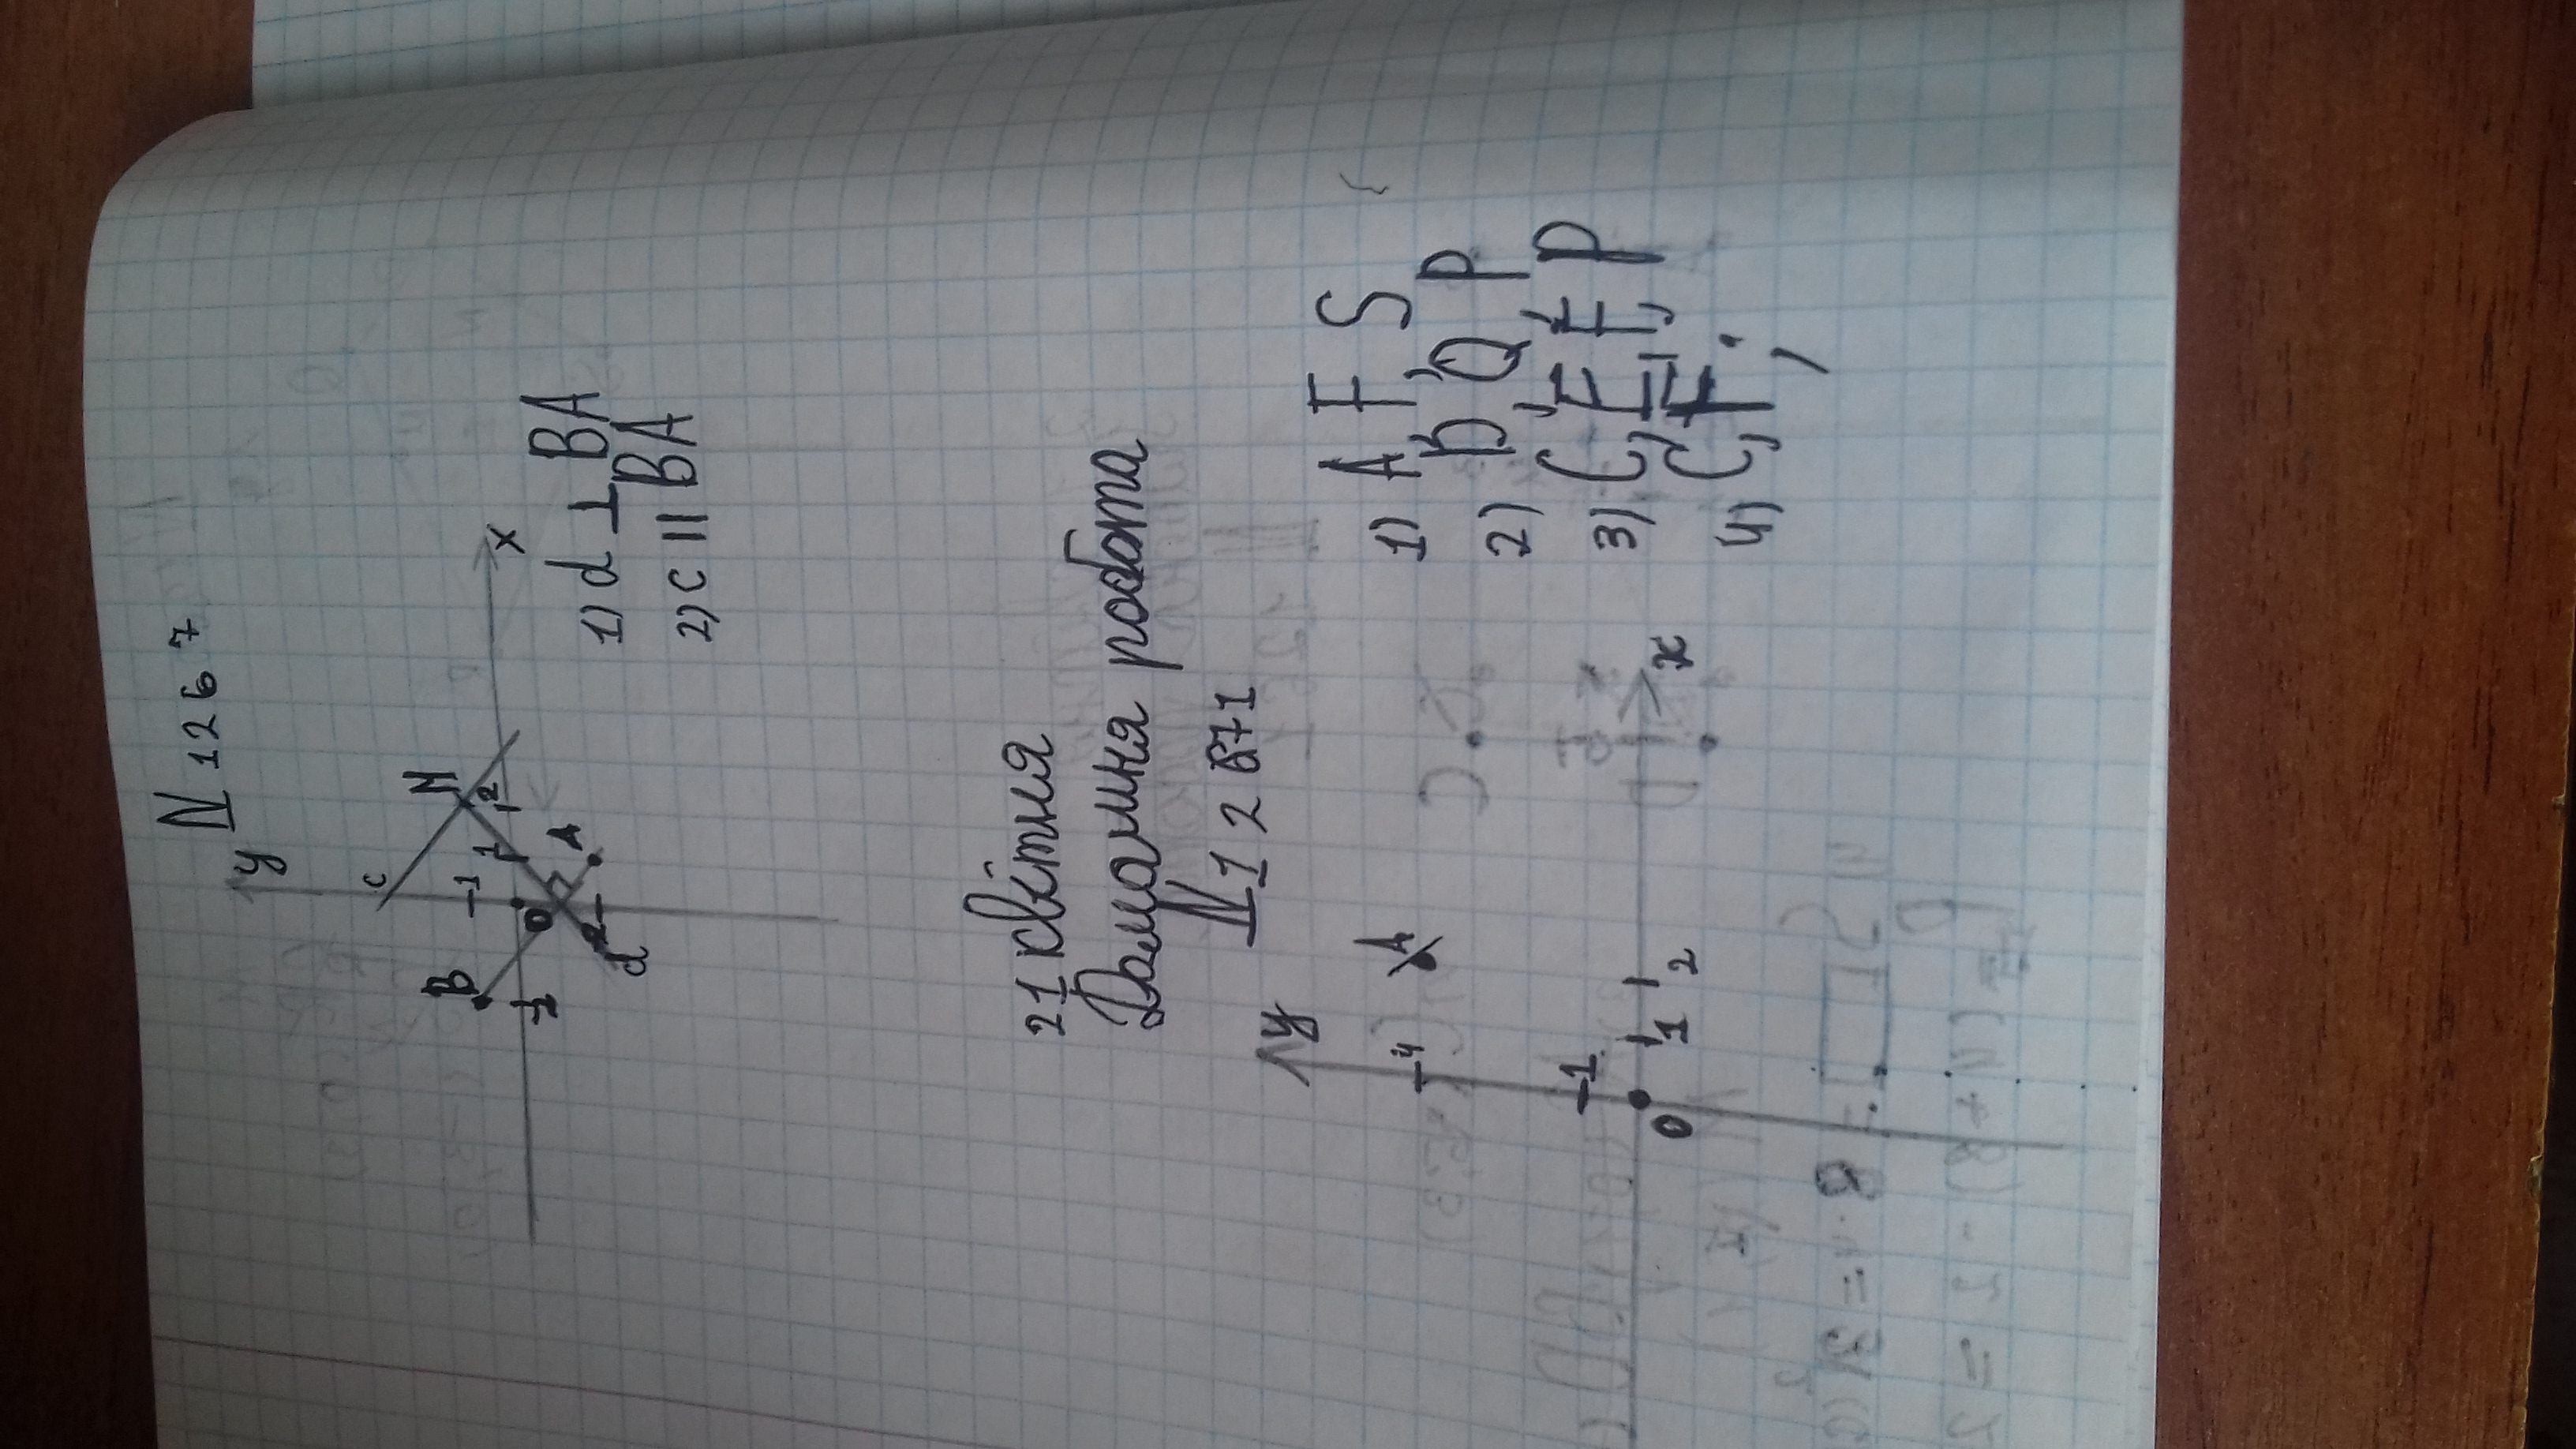 N 1267
y
C
N
B
-1
1
2
x
O
A
-2
d
1) d ⊥ BA
2) c || BA
21 квітня
Домашня робота
N 1271
y
A
4
1
O
1
2
x
1) A F S
2) D, Q P
3) C, E, F, P
4) C, F;